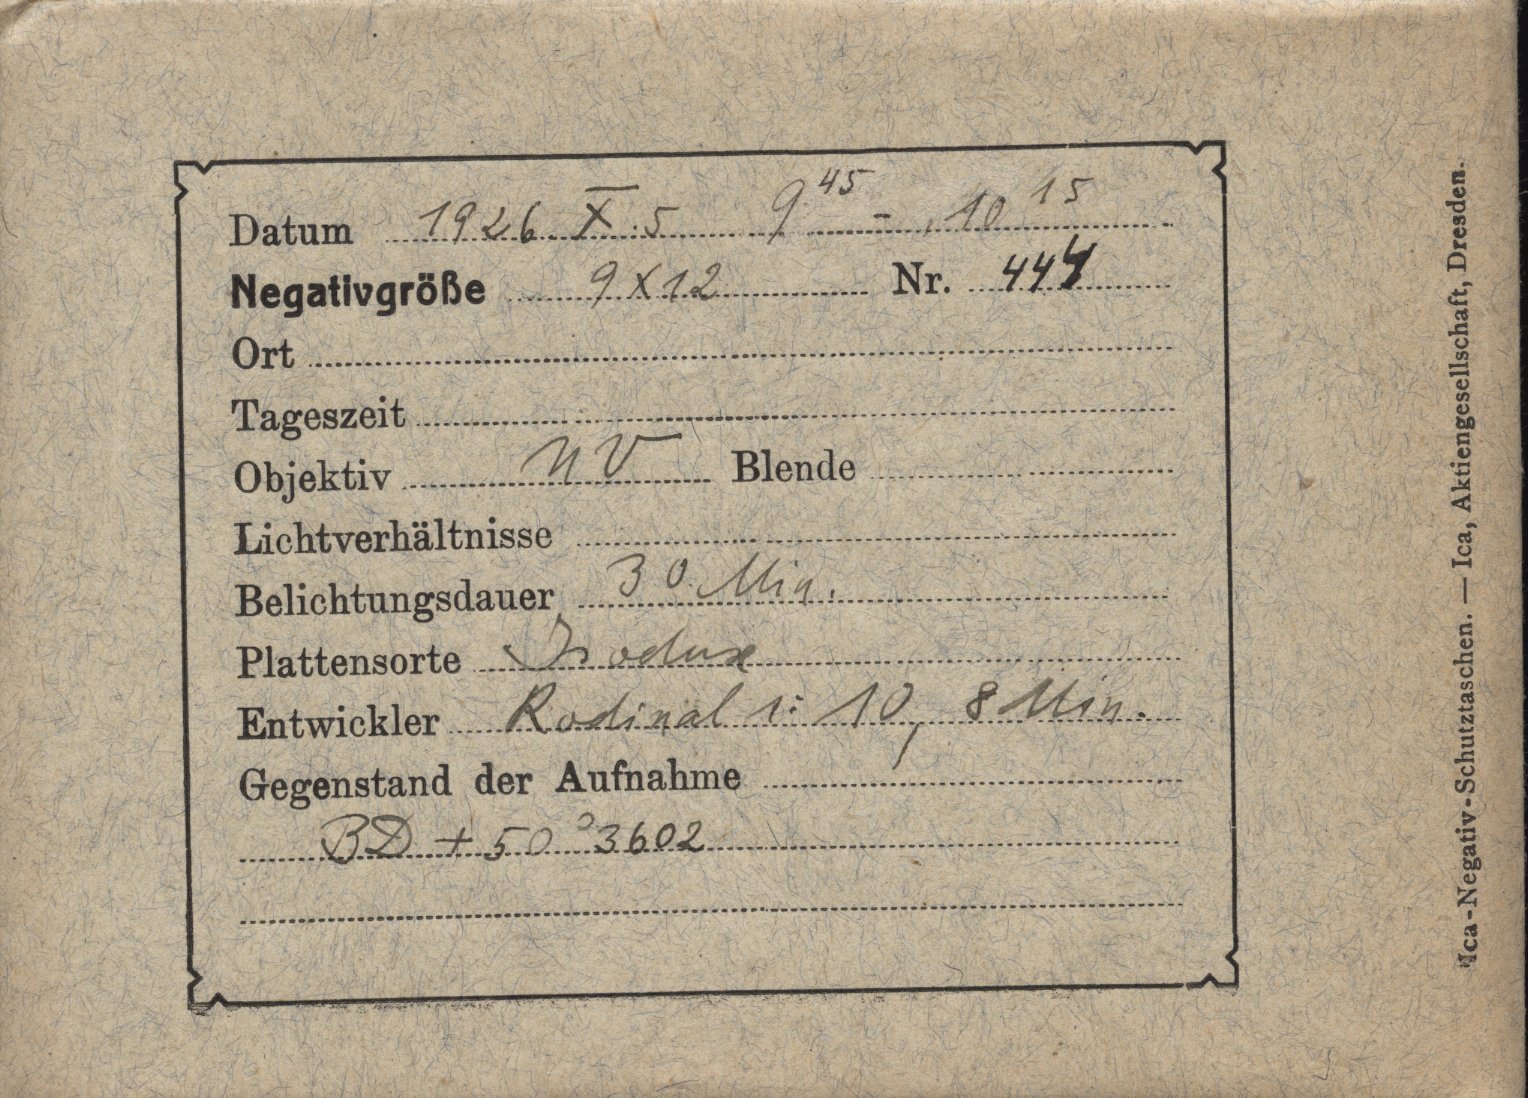 Datum 1926 X.5 9 45 - 10 15
Negativgröße 9X12 Nr. 444
Ort
Tageszeit
Objektiv UV Blende
Lichtverhältnisse
Belichtungsdauer 30 Min.
Plattensorte Isodux
Entwickler Rodinal 1:10, 8 Min.
Gegenstand der Aufnahme
BD + 50° 3602
Ica-Negativ-Schutztaschen. — Ica, Aktiengesellschaft, Dresden.